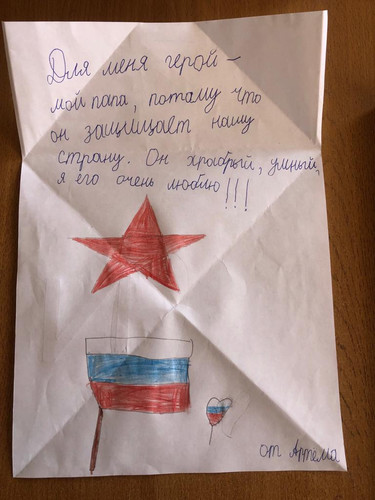 Для меня герой –
мой папа, потому что
он защищает нашу
страну. Он храбрый, умный,
я его очень люблю!!!
от Артема